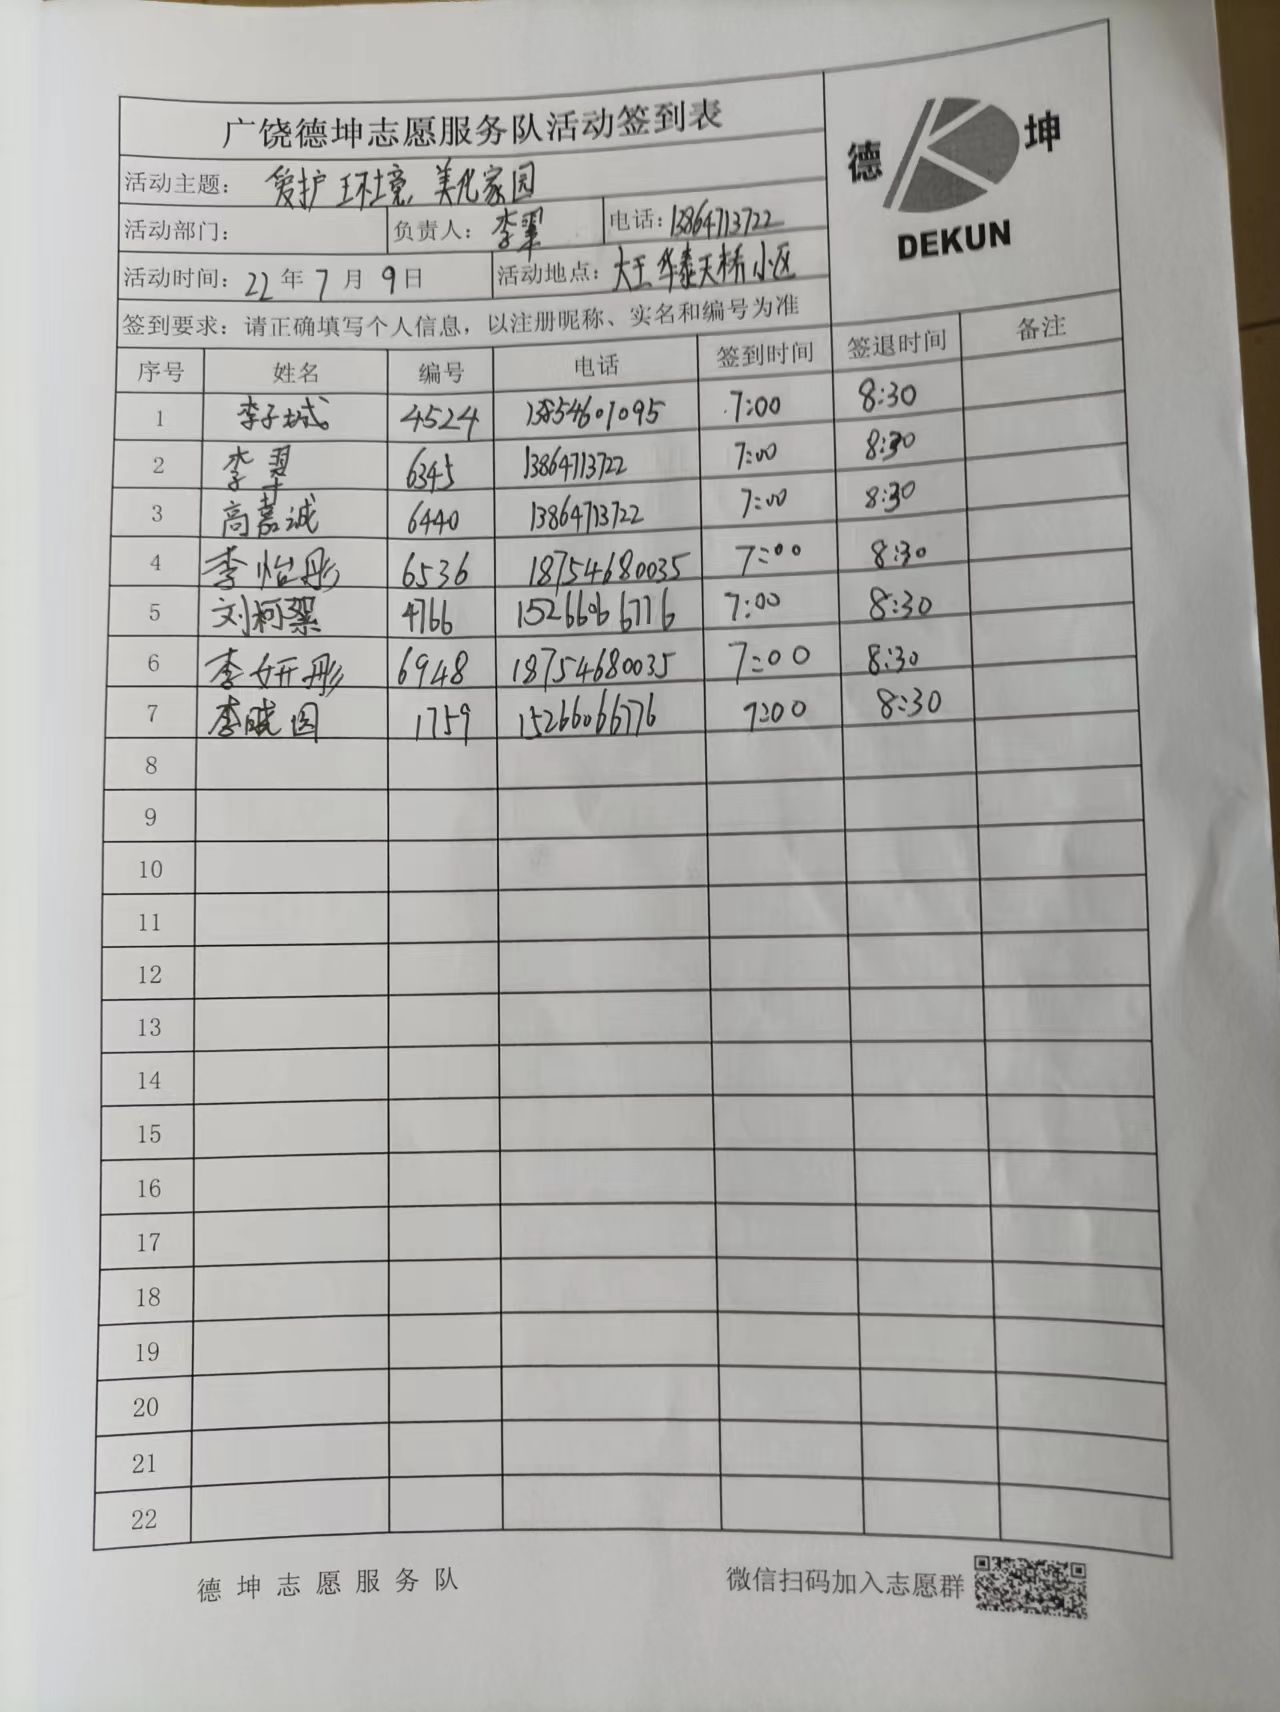 广饶德坤志愿服务队活动签到表
德 坤
DEKUN
活动主题： 爱护环境，美化家园
活动部门： 负责人：李翠 电话：13864713722
活动时间：22年7月9日 活动地点：大王华泰天桥小区
签到要求：请正确填写个人信息，以注册昵称、实名和编号为准
序号 姓名 编号 电话 签到时间 签退时间 备注
1 李子城 4524 13854601095 7:00 8:30
2 李翠 6345 13864713722 7:00 8:30
3 高嘉诚 6440 13864713722 7:00 8:30
4 李怡彤 6536 18754680035 7:00 8:30
5 刘柯絮 4766 15266066776 7:00 8:30
6 李妍彤 6948 18754680035 7:00 8:30
7 李晓 1759 15266066776 7:00 8:30
8
9
10
11
12
13
14
15
16
17
18
19
20
21
22
德坤志愿服务队 微信扫码加入志愿群